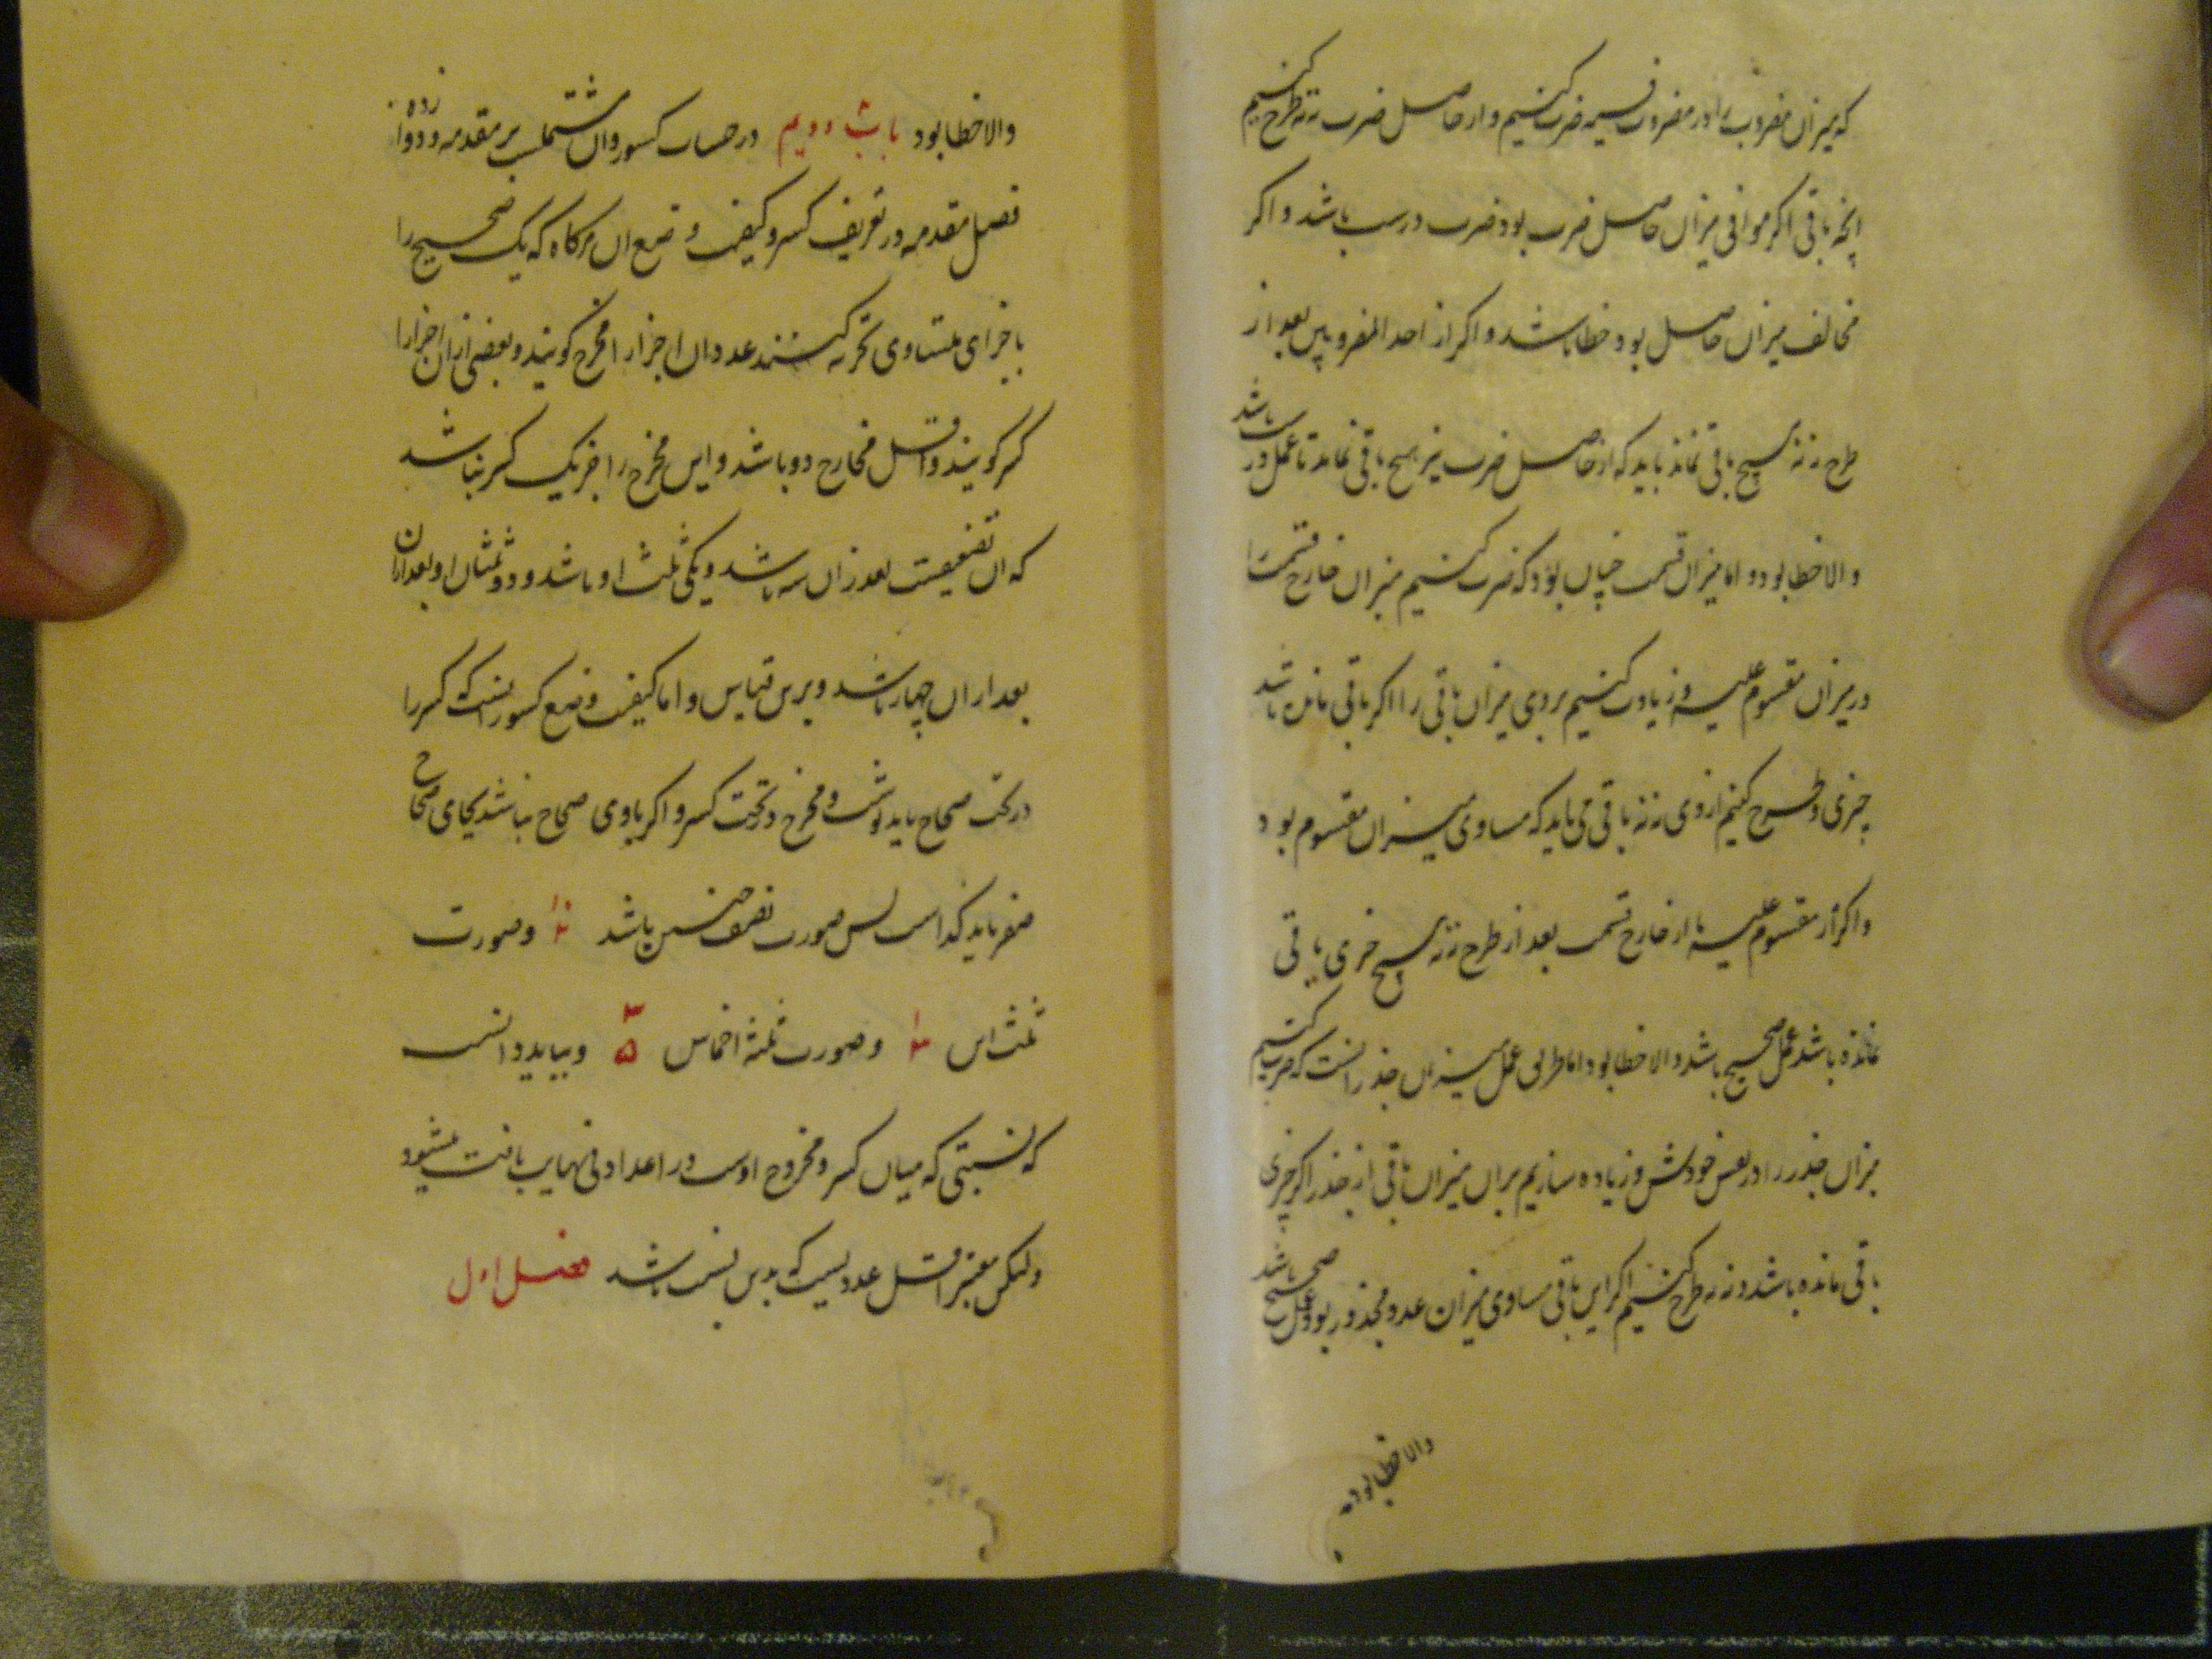 که میزان مضروب را در مضروب فیه ضرب کنیم و از حاصل ضرب نه نه طرح کنیم
انچه باقی اکر موافق میزان حاصل ضرب بود ضرب درست باشد و اکر
مخالف میزان حاصل بود خطا باشد و اکر از احد المضروبین بعد از
طرح نه نه هیچ باقی نماند باید که از حاصل ضرب نیز هیچ باقی نماند تا عمل درست باشد
والا خطا بود و اما میزان قسمت چنان بود که ضرب کنیم میزان خارج قسمت را
در میزان مقسوم علیه و زیادت کنیم بروی میزان باقی را اکر باقی مانده باشد
چیزی و طرح کنیم از وی نه نه باقی می باید که مساوی میزان مقسوم بود
و اکر از مقسوم علیه یا از خارج قسمت بعد از طرح نه نه هیچ چیزی باقی
نمانده باشد عمل صحیح باشد والا خطا بود اما طریق عمل میزان جذر انست که ضرب کنیم
میزان جذر را در نفس خودش و زیاده سازیم بران میزان باقی از جذر اکر چیزی
باقی مانده باشد و نه نه طرح کنیم اکر این باقی مساوی میزان عدد مجذور بود عمل صحیح باشد
والا خطا بود
والا خطا بود باب دویم در حساب کسور وان مشتملست بر مقدمه و دوازده
فصل مقدمه در تعریف کسر و کیفیت وضع ان هرکاه که یک صحیح را
باجزای متساوی تجزیه کنند عدد ان اجزا را مخرج کویند و بعضی از ان اجزا را
کسر کویند و اقل مخارج دو باشد و این مخرج را جز یک کسر نباشد
که ان نصفیست بعد از ان سه باشد و یکی ثلث او باشد و دو ثلثان او بعد از ان
بعد از ان چهار باشد و برین قیاس و اما کیفیت وضع کسور انست که کسر را
در تحت صحاح باید نوشت و مخرج در تحت کسر و اکر با وی صحاح نباشد بجای صحاح
صفر باید کذاشت پس صورت نصف چنین باشد ۱ ۲ و صورت
ثلث این ۱ ۳ و صورت ثلثه اخماس ۳ ۵ و بباید دانست
که نسبتی که میان کسر و مخرج اوست در اعداد بی نهایت یافت میشود
ولیکن معتبر اقل عددیست که بدین نسبت باشد فصل اول